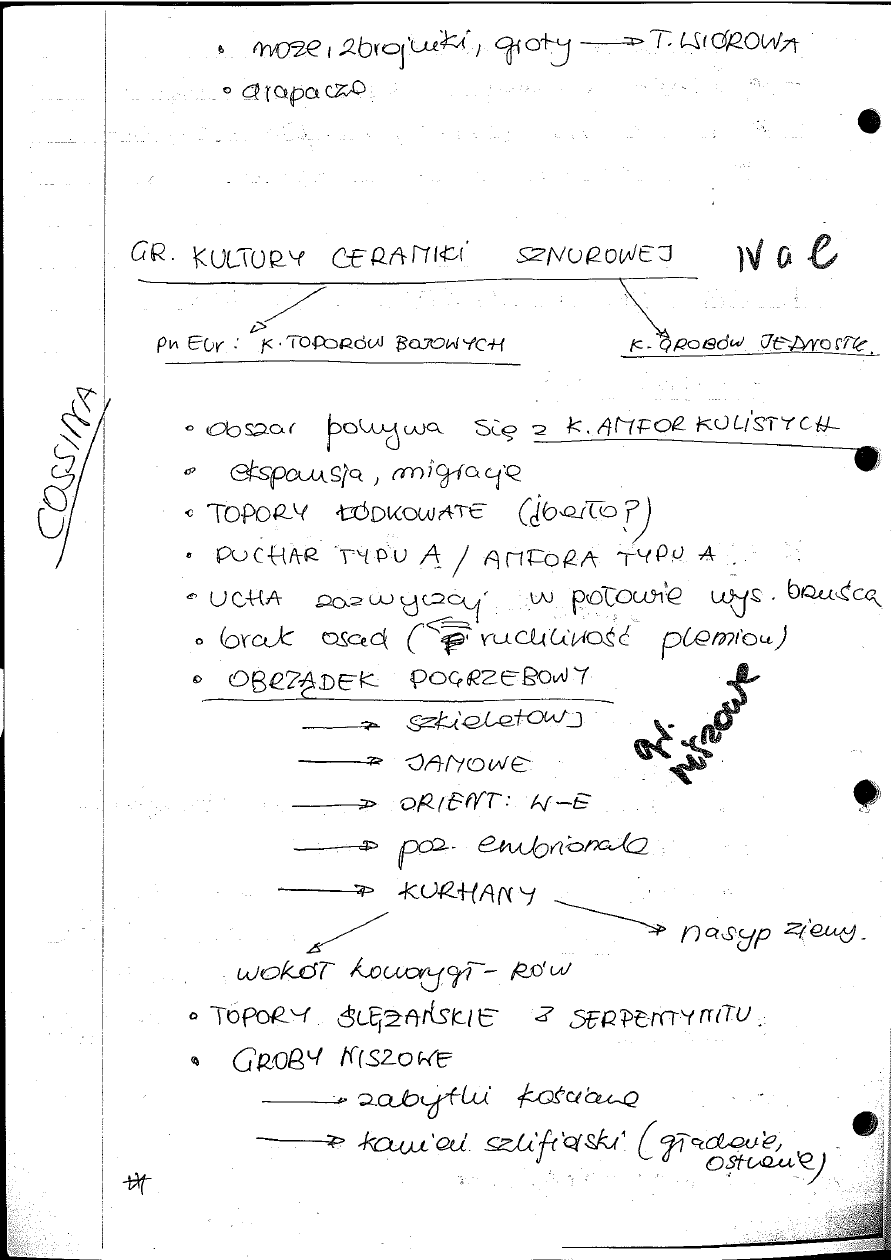 • noże, zbrojniki, groty → T. WIÓROWA
• drapacze
GR. KULTURY CERAMIKI SZNUROWEJ IV a C
pn Eur: K. TOPORÓW BOJOWYCH K. GROBÓW JEDNOSTK.
COSSINA
• Obszar pokrywa się z K. AMFOR KULISTYCH
• ekspansja, migracje
• TOPORY ŁÓDKOWATE (berło?)
• PUCHAR TYPU A / AMFORA TYPU A
• UCHA zazwyczaj w połowie wys. brzuśca
• brak osad ( ruchliwość plemion)
• OBRZĄDEK POGRZEBOWY
→ szkieletowy
gr. niszowe
→ JAMOWE
→ ORIENT: W-E
→ poz. embrionalna
→ KURHANY
→ nasyp ziemny.
WOKÓŁ rowory gł- RÓW
• TOPORY ŚLĘŻAŃSKIE Z SERPENTYNITU.
• GROBY NISZOWE
→ zabytki kościane
→ kamień szlifierski (gładzenie,
ostrzenie)